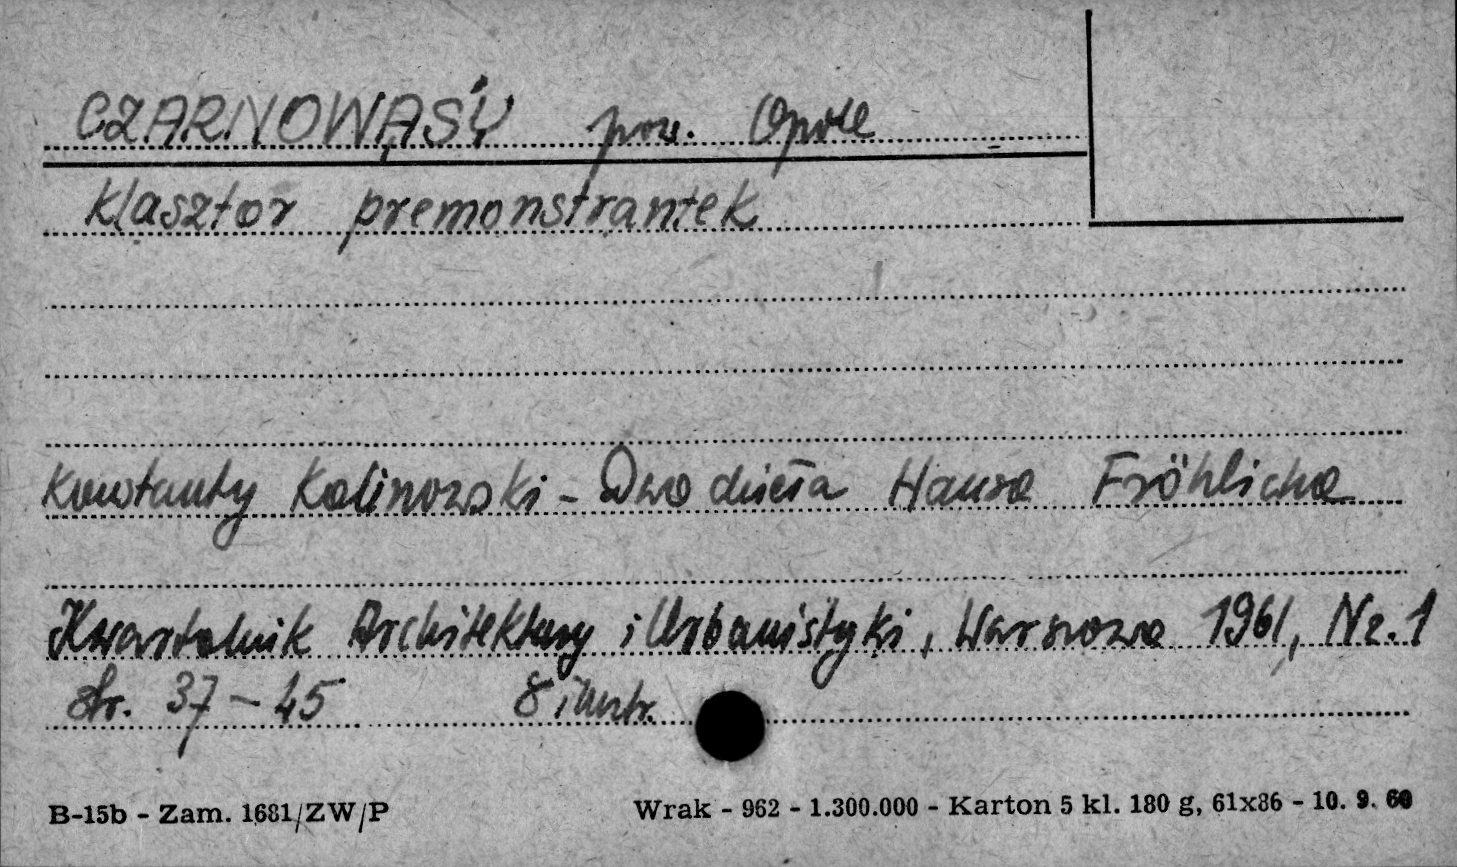 CZARNOWĄSY pow. Opole
Klasztor premonstrantek
Konstanty Kalinowski - Dwa dzieła Hansa Fröhlicha
Kwartalnik Architektury i Urbanistyki, Warszawa 1961, Nr. 1
str. 37 - 45 8 ilustr.
B-15b - Zam. 1681/ZW/P
Wrak - 962 - 1.300.000 - Karton 5 kl. 180 g, 61x86 - 10. 9. 60